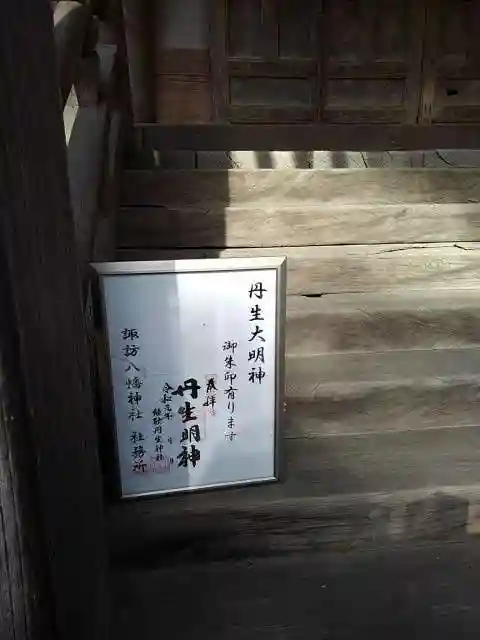 丹生大明神
御朱印有ります
奉拝
丹生明神
令和元年 月 日
丹生神社
諏訪八幡神社 社務所